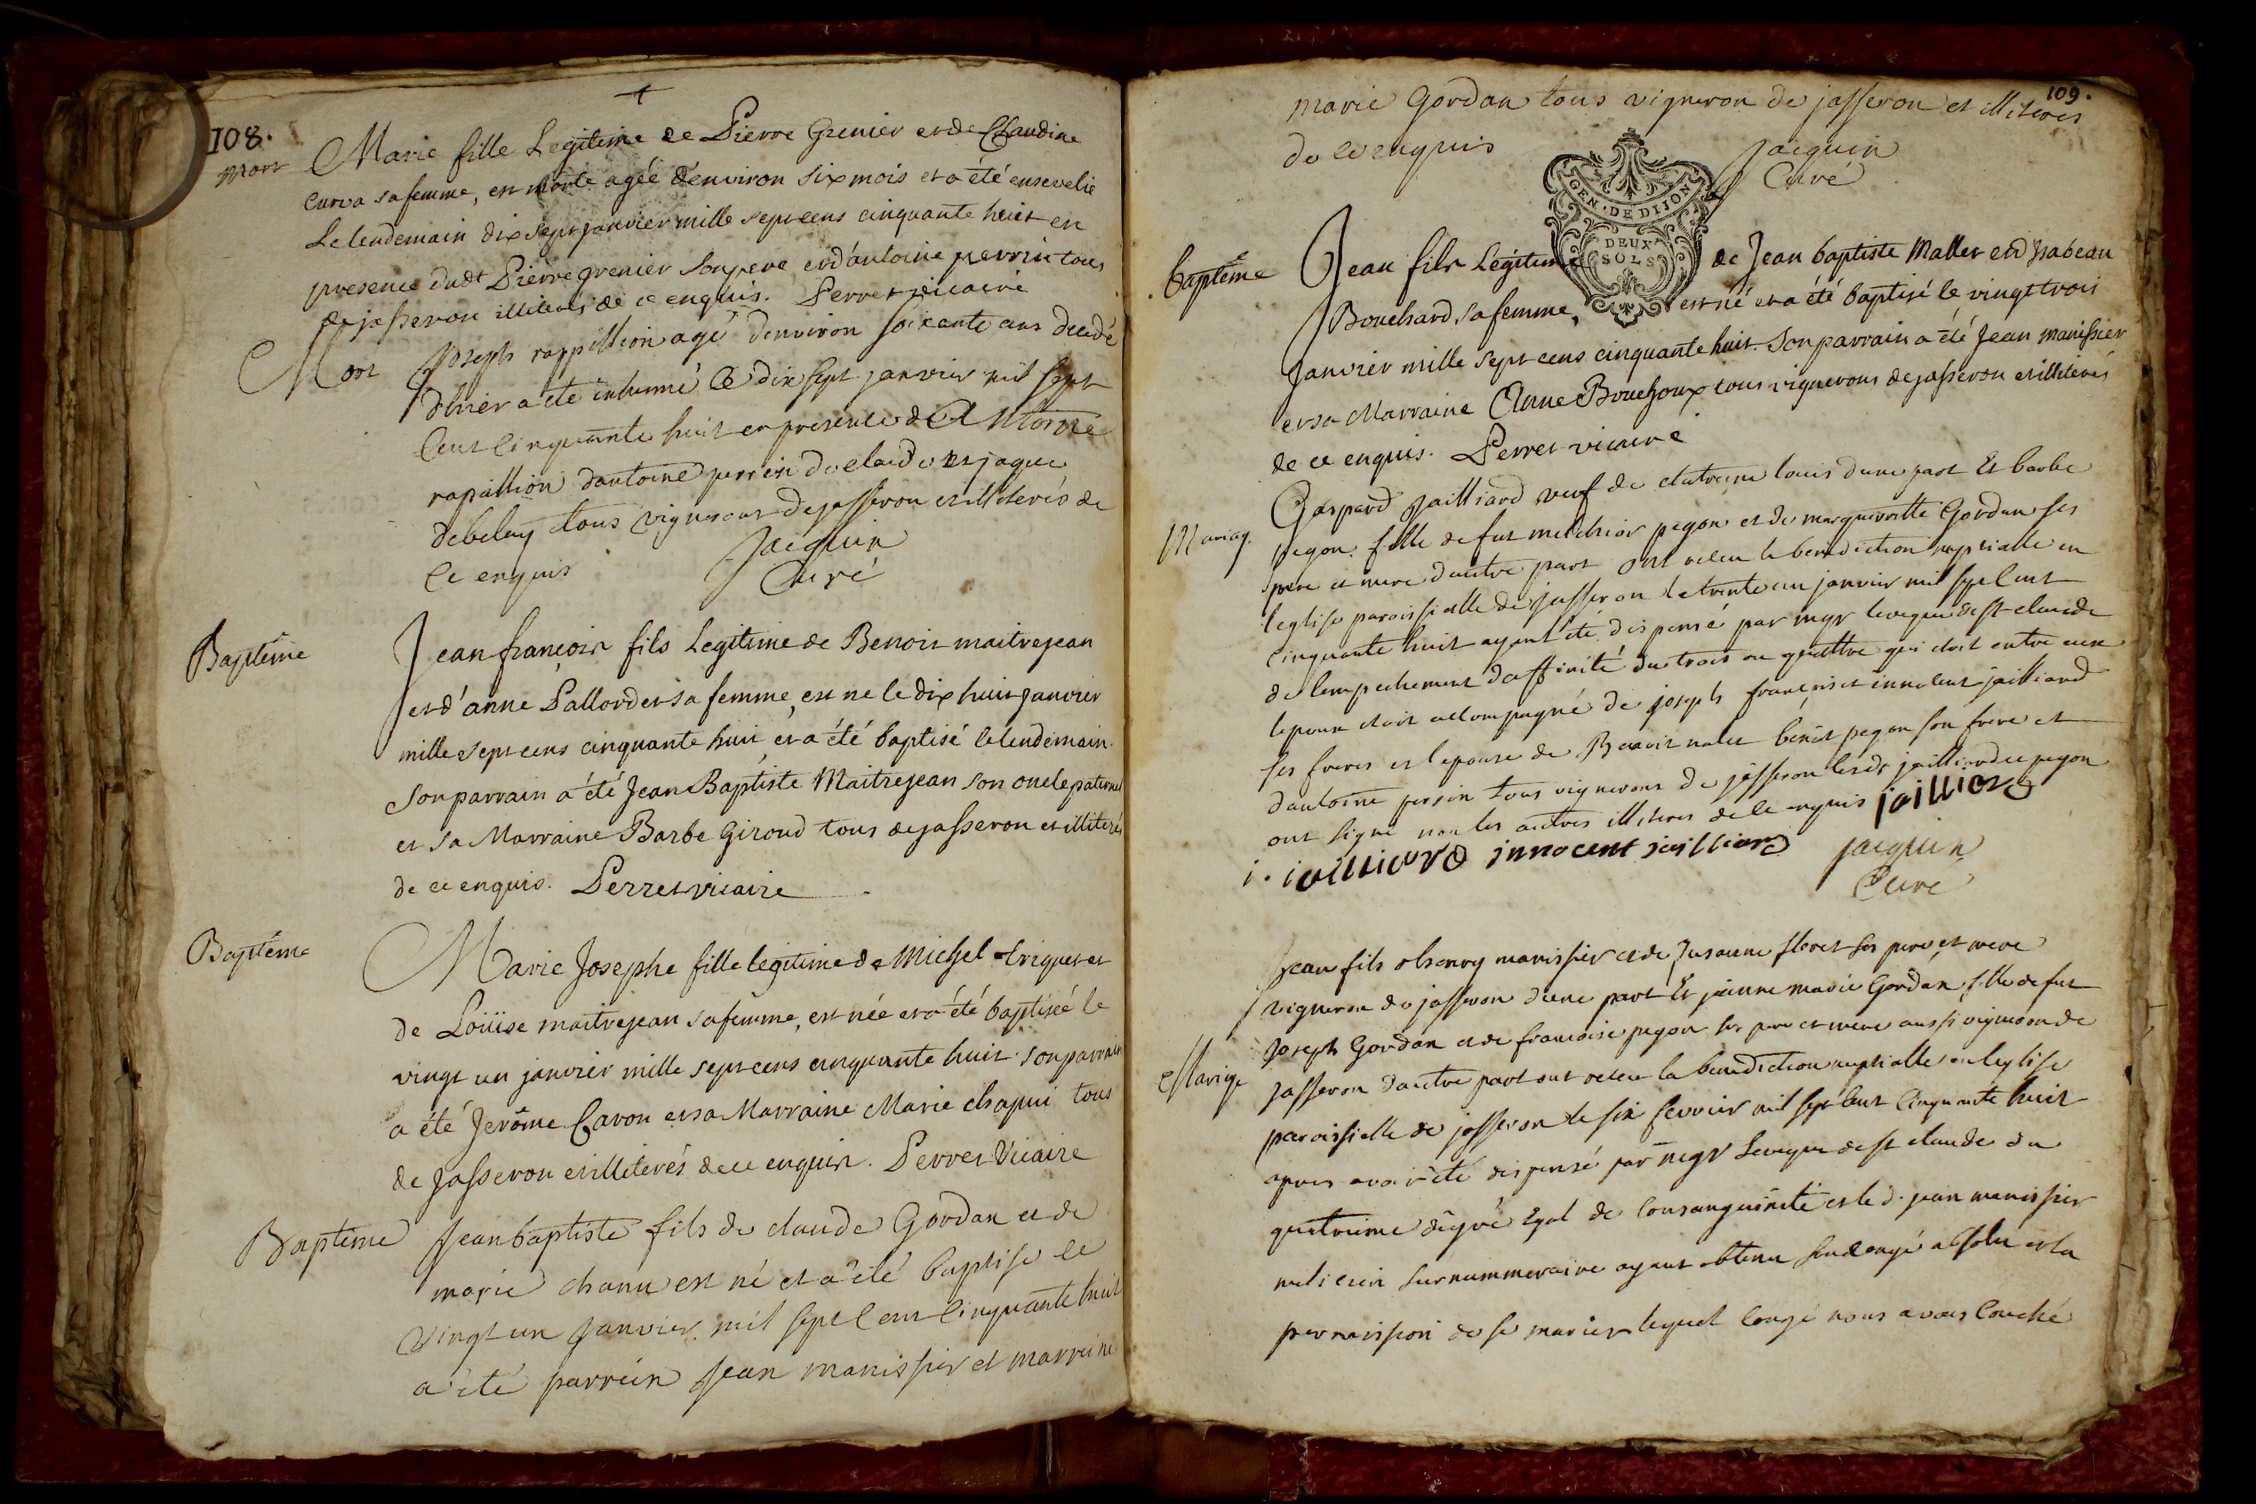 108.
mort Marie fille Legitime de Pierre Grenier et de Claudine
Curva sa femme, est morte agéé d'environ six mois et a été ensevelie
Le lendemain dix sept janvier mille sept cens cinquante huit en
presence dudt Pierre grenier son pere et d'antoine perrin tous
de jasseron illiterés de ce enquis. Perret vicaire
Mort Joseph rappillion agé denviron soixante ans decedé
dhier a été inhumé Le dix sept janvier mil sept
Cent Cinquante huit en presence d Antoine
rapillion dantoine perrin de claude et jaque
debeley tous vignerons de jasseron et illiterés de
Ce enquis Jacquin
Curé
Baptême Jean françois fils Legitime de Benoit maitrejean
et d'anne Pallordet sa femme, est ne le dix huit janvier
mille sept cens cinquante huit et a été baptisé le lendemain.
Son parrain a été Jean Baptiste Maitrejean son oncle paternel
et sa Marraine Barbe Giroud tous de jasseron et illiterés
de ce enquis. Perret vicaire
Baptême Marie Josephe fille legitime de Michel triquet et
de Loüise maitrejean sa femme, est née et a été baptiséé le
vingt un janvier mille sept cens cinquante huit. son parrain
a été Jerôme Cavon et sa Marraine Marie chapui tous
de Jasseron et illiterés de ce enquis. Perret Vicaire
Baptême Jean baptiste fils de claude Gordan et de
marie chanu est né et a été baptisé le
Vingt un Janvier mil sept Cent Cinquante huit
a été parrein Jean manissier et marreine
109.
marie Gordan tous vigneron de jasseron et illiteres
de ce enquis Jacquin
Curé
GEN. DE DIJON
DEUX
SOLS
baptême Jean fils Légitime de Jean baptiste Maller et d'Isabeau
Bouchard sa femme, est né et a été baptisé le vingt trois
Janvier mille sept cens cinquante huit. Son parrain a été Jean manissier
et sa Marraine Anne Bouchoux tous vignerons de jasseron et illiterés
de ce enquis. Perret vicaire
Mariag. Gaspard Jailliard veuf de louis dune part Et barbe
pegon fille de fut melchior pegon et de marguerite Gordan ses
pere et mere dautre part ont receu la benediction nuptialle en
leglise paroissialle de jasseron le trente un janvier mil sept Cent
Cinquante huit ayant été dispensé par mgr leveque de st claude
de lempechement daffinité du trois au quattre qui étoit entre eux
lepoux etoit accompagné de joseph françois et innocent jailliard
ses freres et lepouse de Benoit nalet benoit pegon son frere et
dantoine perrin tous vignerons de jasseron lesds jailliard et pegon
ont signé non les autres illiteres de ce enquis jailliard
i. iailliard innocent jailliard Jacquin
Curé
Mariage Jean fils dhenry manissier et de Susanne floret ses pere et mere
vigneron de jasseron dune part Et jeanne marie Gordan fille de fut
Joseph Gordan et de francoise pegon ses pere et mere aussi vigneron de
jasseron dautre part ont receu la benediction nuptialle en leglise
paroissialle de jasseron le six fevrier mil sept Cent Cinquante huit
apres avoir été dispensé par mgr Leveque de st claude du
quatrieme degré Egal de Consanguinité et le d. jean manissier
milicien surnummeraire ayant obtenu son Congé absolu et la
permission de se marier lequel Congé nous avons Couché